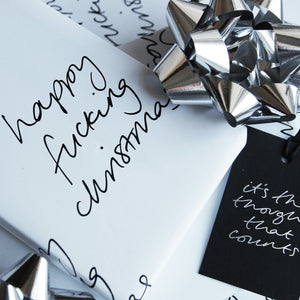 happy
fucking
christmas
it's the
thought
that
counts